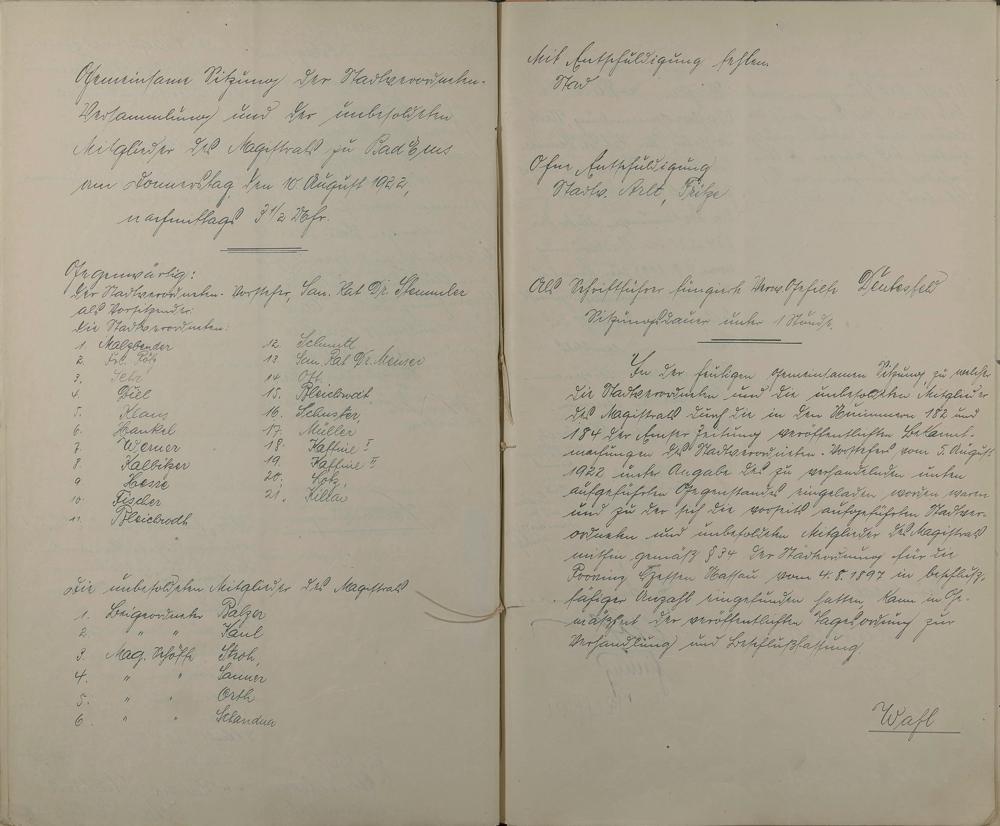 Gemeinsame Sitzung der Stadtverordneten-
Versammlung und der unbesoldeten
Mitglieder des Magistrats zu Bad Ems
am Donnerstag, den 10 August 1922,
nachmittags 3 1/2 Uhr.
Gegenwärtig:
Der Stadtverordneten-Vorsteher, San. Rat Dr. Stemmler
als Vorsitzender.
Die Stadtverordneten:
1. Malzbender
2. Frl.
3.
4. Diel
5. Klaas
6. Henkel
7. Werner
8. Kalbitzer
9 Hesse
10. Fischer
11. Bleichrodt
12. Schmitt
13. San. Rat Dr. Meuser
14. Ott
15. Bleichrodt
16. Schuster,
17. Müller
18 Kaffine I
19. Kaffine II
20. Götz,
21. Kilian
Die unbesoldeten Mitglieder des Magistrats
1. Beigeordneter Balzer
2. " " Kaul
3. Mag. Schöffe Stroh,
4. " " Sauner
5. " " Orth
6. " "
Mit Entschuldigung fehlen.
Stad
Ohne Entschuldigung
Stadtv. Arlt, Fritze
Als Schriftführer fungierte Verw. Gehilfe
Sitzungsdauer unter 1 Stunde.
In der heutigen gemeinsamen Sitzung, zu welcher
die Stadtverordneten und die unbesoldeten Mitglieder
des Magistrats durch die in den Nummern 182 und
184 der Emser Zeitung veröffentlichten Bekannt-
machungen des Stadtverordneten-Vorstehers vom 5. August
1922 unter Angabe des zu verhandelnden unten
aufgeführten Gegenstandes eingeladen worden waren
und zu der sich die vorseits aufgeführten Stadtver-
ordneten und unbesoldeten Mitglieder des Magistrats
mithin gemäß § 34 der Städteordnung für die
Provinz Hessen Nassau vom 4. 8. 1897 in beschluß-
fähiger Anzahl eingefunden hatten, kam in Ge-
mäßheit der veröffentlichten Tagesordnung zur
Verhandlung und Beschlußfassung.
Wahl